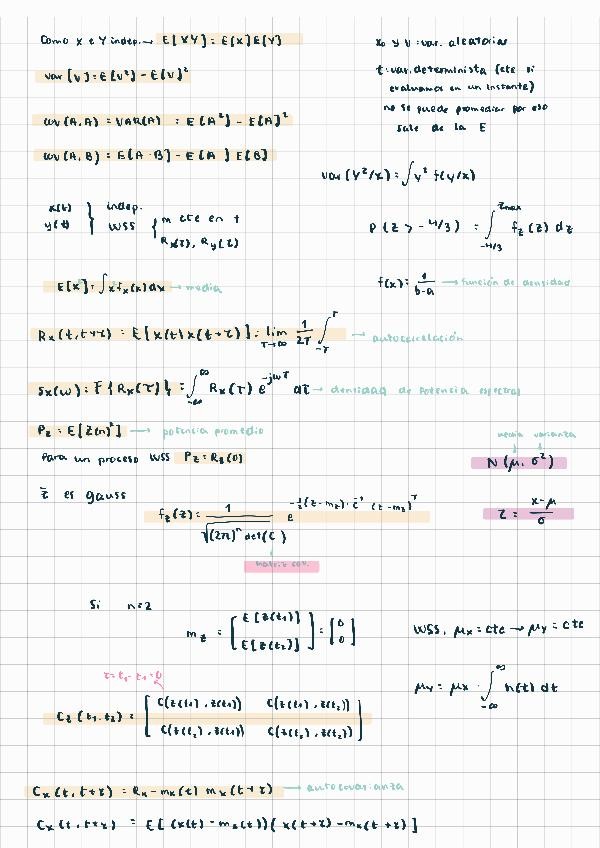 Como X e Y indep. → E[XY] = E[X]E[Y]
X, Y y V: var. aleatorias
var[V] = E[V²] - E[V]²
t: var. determinista (cte si
evaluamos en un instante)
no se puede promediar por eso
sale de la E
cov(A,A) = VAR(A) = E[A²] - E[A]²
cov(A,B) = E[A·B] - E[A]E[B]
var(Y²/x) = ∫ y² f(y/x)
x(t)
y(t) } indep.
WSS { m cte en t
Rx(τ), Ry(τ)
P(z > -4/3) = ∫_{-4/3}^{zmax} f_z(z) dz
E[x] = ∫ x f_x(x) dx → media
f(x) = 1/(b-a) → función de densidad
Rx(t, t+τ) = E[x(t) x(t+τ)] = lim_{T→∞} 1/2T ∫_{-T}^{T} → autocorrelación
Sx(ω) = F{Rx(τ)} = ∫_{-∞}^{∞} Rx(τ) e^{-jωτ} dτ → densidad de potencia espectral
Pz = E[z(n)²] → potencia promedio
media varianza
Para un proceso WSS Pz = Rz(0)
N(μ, σ²)
z̄ es gauss
f_z(z) = 1/√((2π)ⁿ det(C)) e^{-½(z-m_z)·C⁻¹(z-m_z)ᵀ}
Z = (x-μ)/σ
matriz cov.
Si n=2
m_z = [E[z(t₁)] E[z(t₂)]] = [0 0]
WSS, μx = cte → μy = cte
τ = t₁ - t₁ = 0
μy = μx · ∫_{-∞}^{∞} h(t) dt
Cz(t₁, t₂) = [C(z(t₁), z(t₁)) C(z(t₁), z(t₂))
C(z(t₂), z(t₁)) C(z(t₂), z(t₂))]
Cx(t, t+τ) = Rx - mx(t) mx(t+τ) → autocovarianza
Cx(t, t+τ) = E[(x(t) - mx(t))(x(t+τ) - mx(t+τ)]